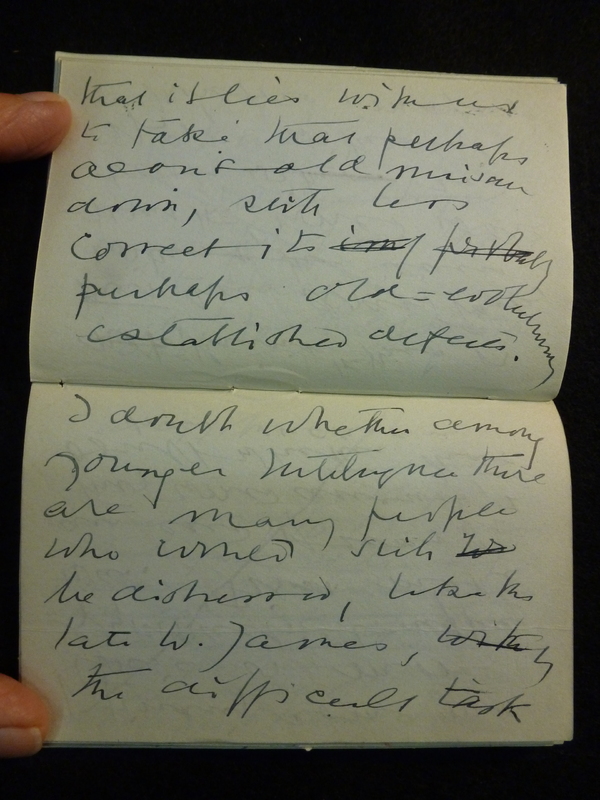 that it lies with us
to take that perhaps
old
down, with less
correct its
perhaps old-
established defects.
I doubt whether among
younger Intelligence there
are many people
who would still
be distressed, like the
late W. James, with
the difficult task